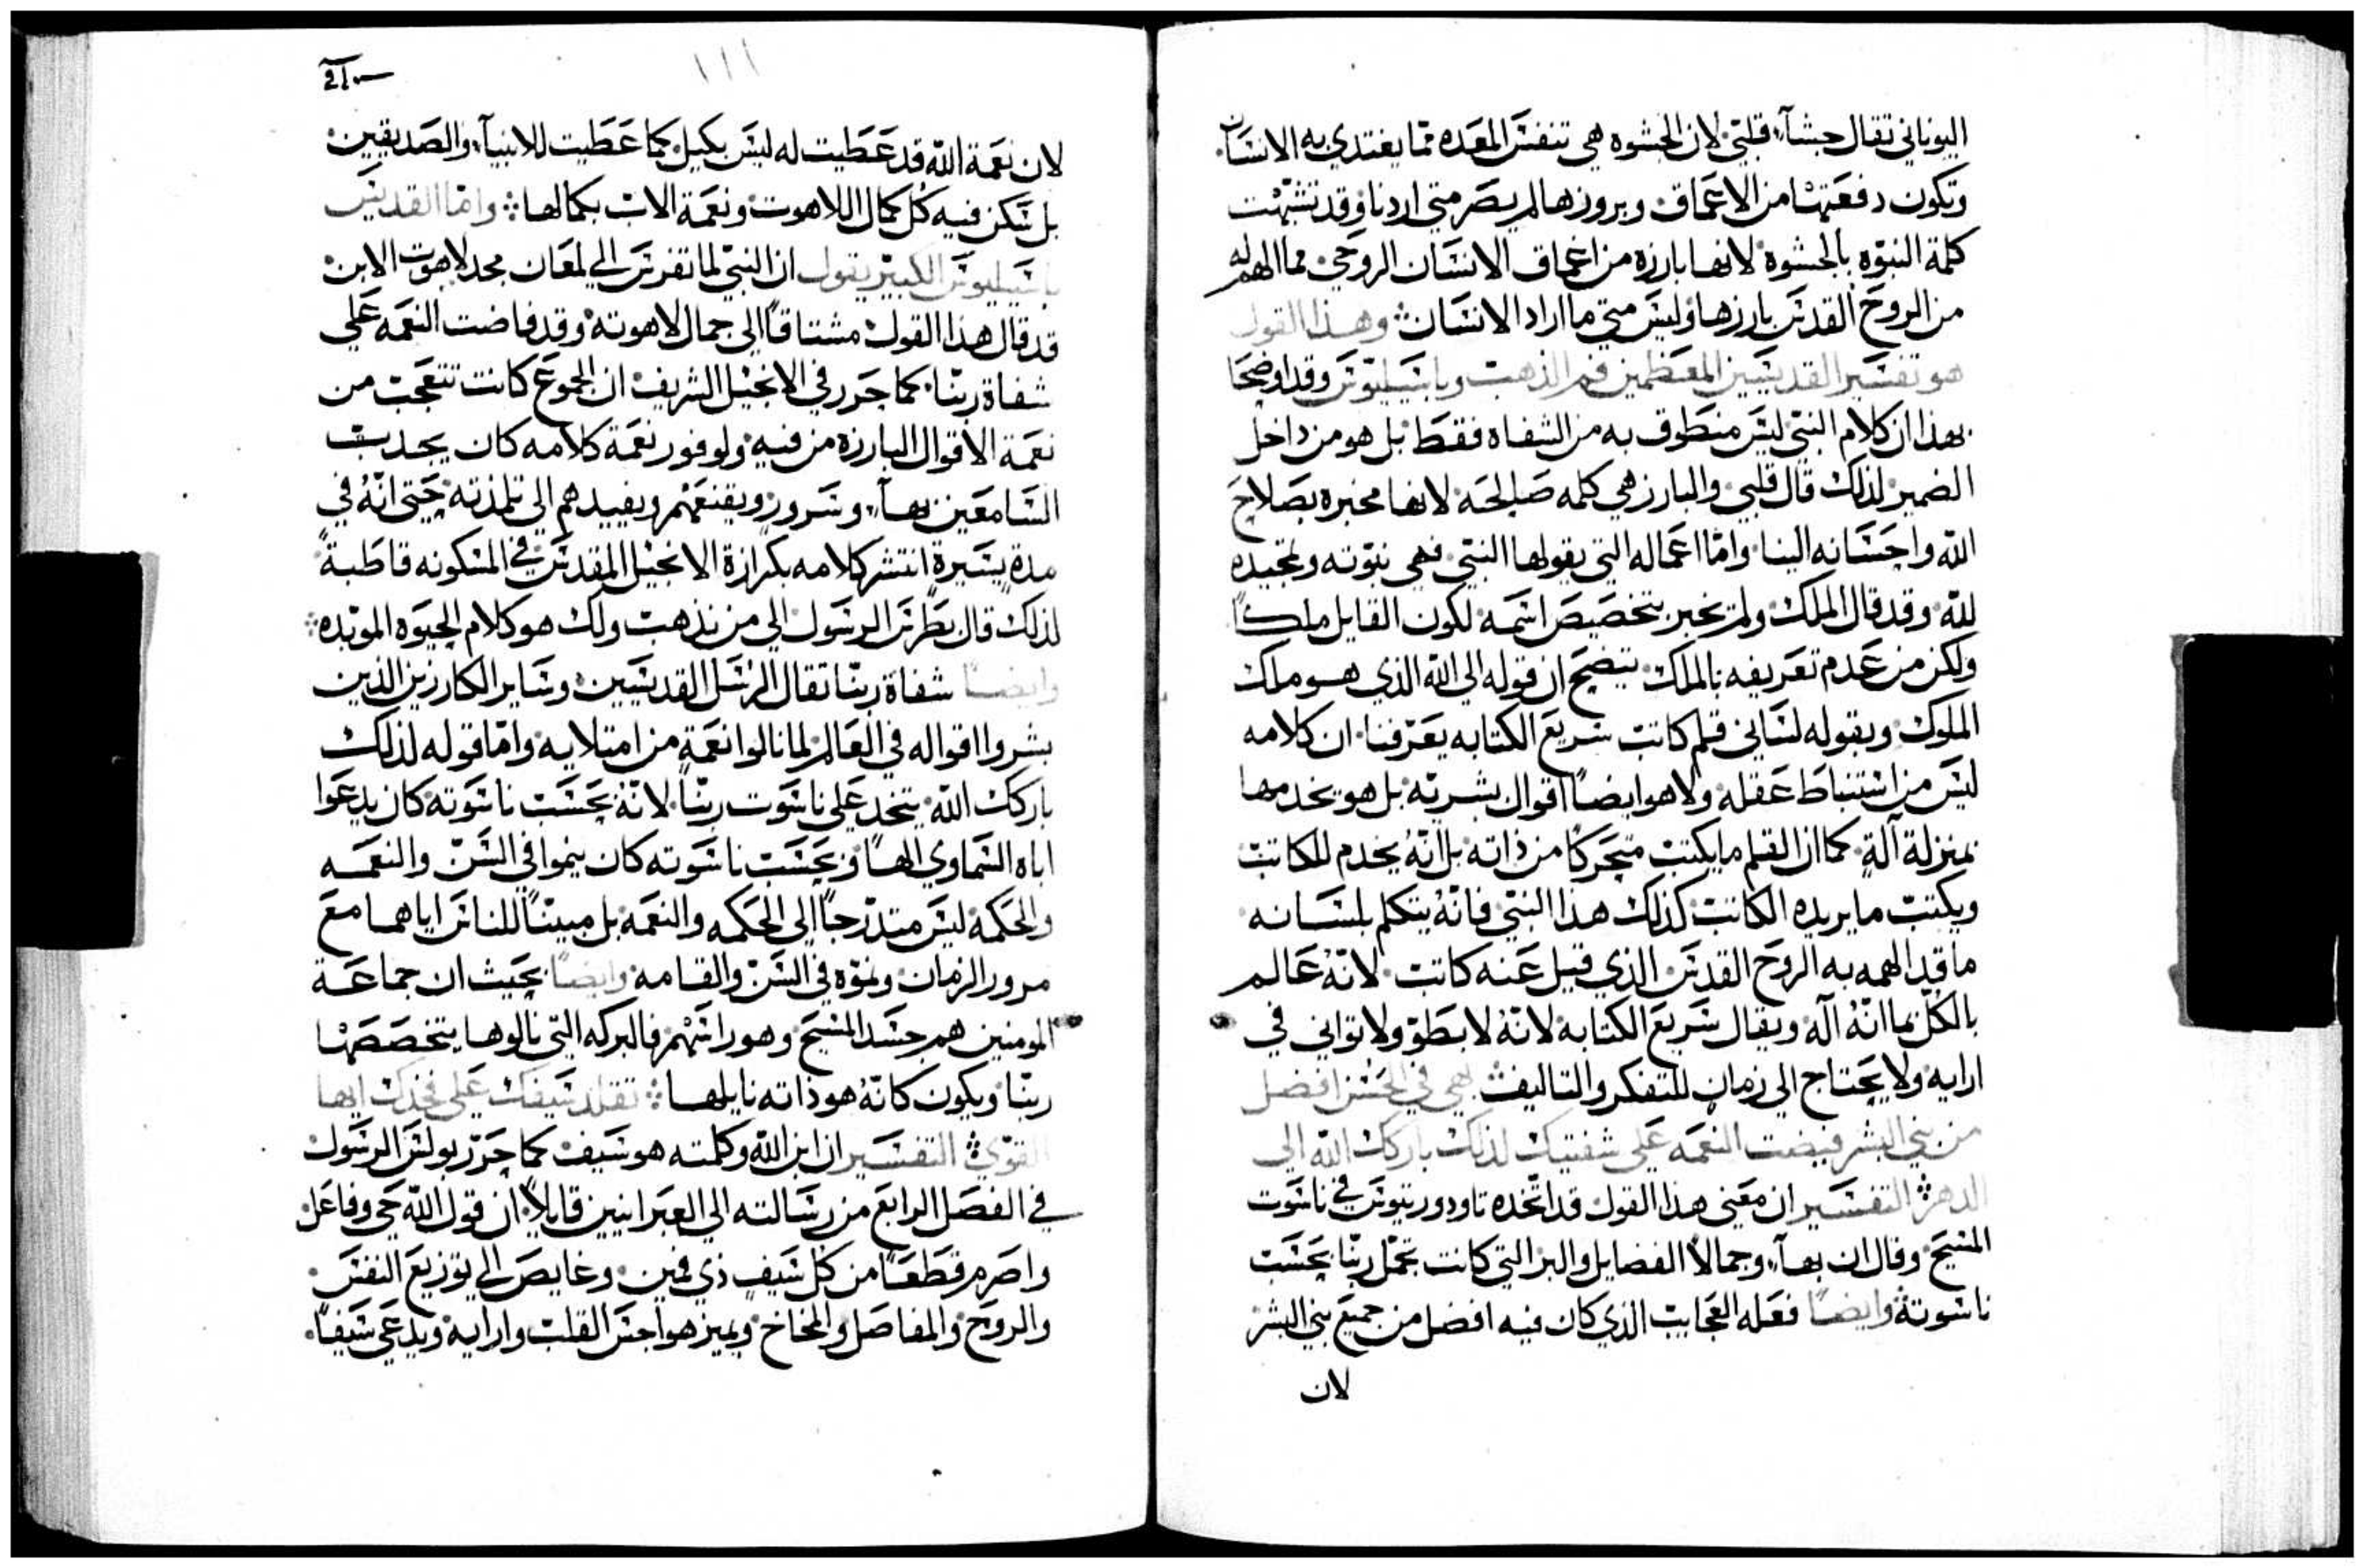 اليوناني تقال جشآء قلبي لان الجشوه هي تنفس المعده مما يغتدي به الانسان
وتكون دفعتها من الاعماق وبروزها لم يصر متي اردنا وقد تشبهت
كلمة النبوه بالجشوة لانها بارزه من اعماق الانسان الروحي مما الهم له
من الروح القدس بارزها وليس متي ما اراد الانسان وهذا القول
هو تفسير القديسين المعظمين فم الذهب وباسيليوس وقد اوضحا
بهذا ان كلام النبي ليس منطوق به من الشفاه فقط بل هو من داخل
الضمير لذلك قال قلبي والبارز هي كلمه صالحه لانها مخبره بصلاح
الله واحسانه الينا واما اعماله التي يقولها النبي فهي نبوته وتمجيده
لله وقد قال الملك ولم يخبر بتخصيص اسمه لكون القايل ملكاً
ولكن من عدم تعريفه بالملك يتضح ان قوله الي الله الذي هو ملك
الملوك وبقوله لساني قلم كاتب سريع الكتابه يعرفنا ان كلامه
ليس من استنباط عقله ولا هو ايضاً اقوال بشريه بل هو يخدمها
بمنزلة آلة كما ان القلم ما يكتب متحركاً من ذاته بل انه يخدم للكاتب
ويكتب ما يريده الكاتب كذلك هذا النبي فانه يتكلم بلسانه
ما قد الهمه به الروح القدس الذي قيل عنه كاتب لانه عالم
بالكل بما انه آله ويقال سريع الكتابه لانه لا بطو ولا تواني في
ارايه ولا يحتاج الي زمان للتفكر والتاليف بهي في الحسن افضل
من بني البشر فيضت النعمه علي شفتيك لذلك باركك الله الي
الدهر التفسير ان معني هذا القول قد اتخده تاودوريتوس في ناسوت
المسيح وقال ان بهآء وجمالا الفضايل والبر التي كانت تجمل ربنا بحسب
ناسوته وايضاً فعله العجايب الذي كان فيه افضل من جميع بني البشر
لان
لان نعمة الله قد عطيت له ليس بكيل كما عطيت للانبيآء والصديقين
بل سكن فيه كل كمال اللاهوت ونعمة الاب بكمالها واما القديس
باسيليوس الكبير يقول ان النبي لما تفرس الي لمعان مجد لاهوت الابن
قد قال هذا القول مشتاقاً الي جمال لاهوته وقد فاضت النعمه علي
شفاة ربنا كما حرر في الانجيل الشريف ان الجموع كانت تتعجب من
نعمة الاقوال البارزه من فيه ولوفور نعمة كلامه كان يجدب
السامعين بهآء وسرور ويقنعهم ويفيدهم الي تلمذته حتي انه في
مدة يسيرة انتشر كلامه بكرازة الانجيل المقدس في المسكونه قاطبةً
لذلك قال بطرس الرسول الي من نذهب ولك هو كلام الحيوه الموبده
وايضاً شفاة ربنا تقال الرسل القديسين وساير الكارزين الذين
بشروا اقواله في العالم لما نالوا نعمة من امتلايه واما قوله لذلك
باركك الله يتخد علي ناسوت ربنا لانه بحسب ناسوته كان يدعوا
اباه السماوي الهاً وبحسب ناسوته كان ينموا في السن والنعمه
والحكمه ليس متدرجاً الي الحكمه والنعمه بل مبيناً للناس اياهما مع
مرور الزمان ونموه في السن والقامه وايضاً بحيث ان جماعة
المومنين هم جسد المسيح وهو راسهم فالبركه التي نالوها يتخصصها
ربنا ويكون كانه هو ذاته نايلها تقلد سيفك علي فخدك ايها
القوي التفسير ان ابن الله وكلمته هو سيف كما حرر بولس الرسول
في الفصل الرابع من رسالته الي العبرانيين قايلاً ان قول الله حي وفاعل
واصرم قطعاً من كل سيف ذي فمين وغايص الي توزيع النفس
والروح والمفاصل والمخاخ ويميز هواجس القلب وارايه ويدعي سيفاً